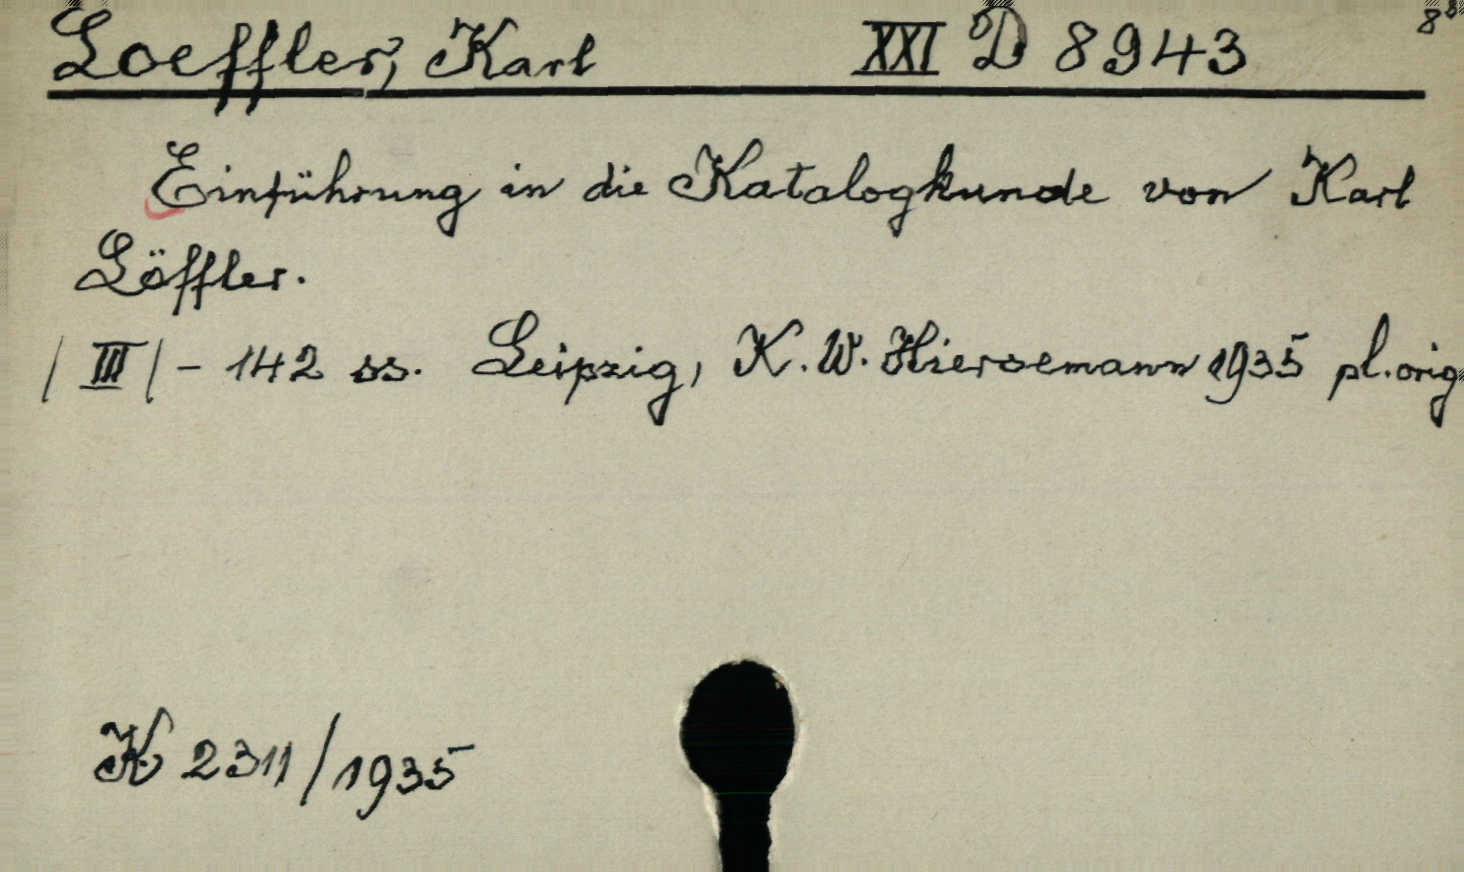 Loeffler, Karl XXI D 8943 8°
Einführung in die Katalogkunde von Karl
Löffler.
/III/ - 142 ss. Leipzig, K. W. Hiersemann 1935 pl. orig
K 2311/1935